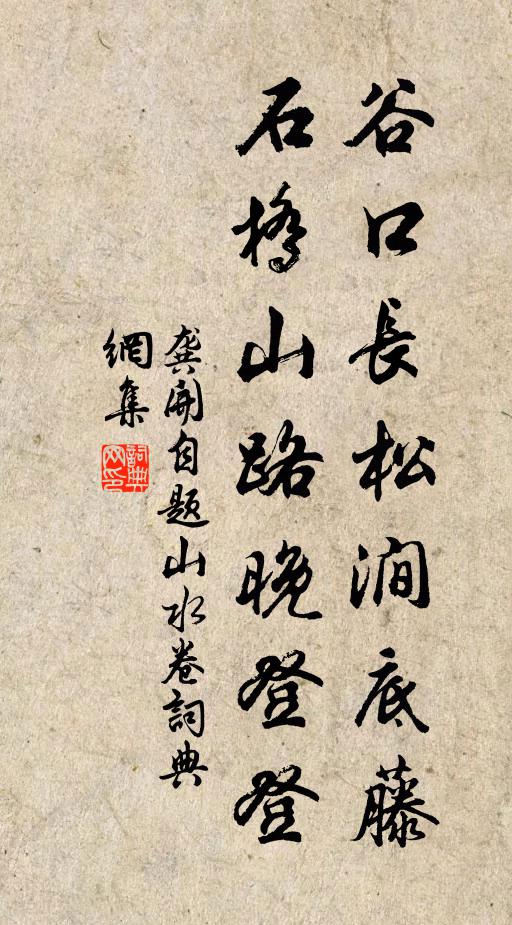 谷口長松澗底藤
石橋山路晚登登
龔開自题山水卷詞典
網集
詞典網印